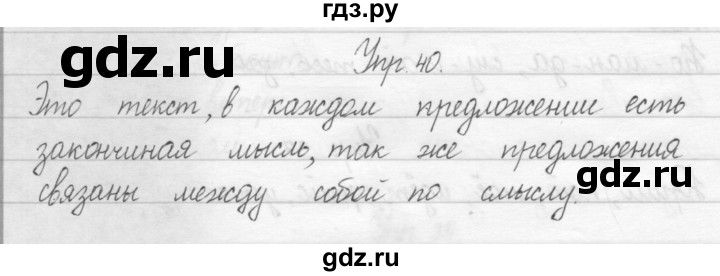 гдз.ру
gdz.ru
Упр. 40.
Это текст, в каждом предложении есть
закончиная мысль, так же предложения
gdz.ru
связаны между собой по смыслу.
gdz.ru